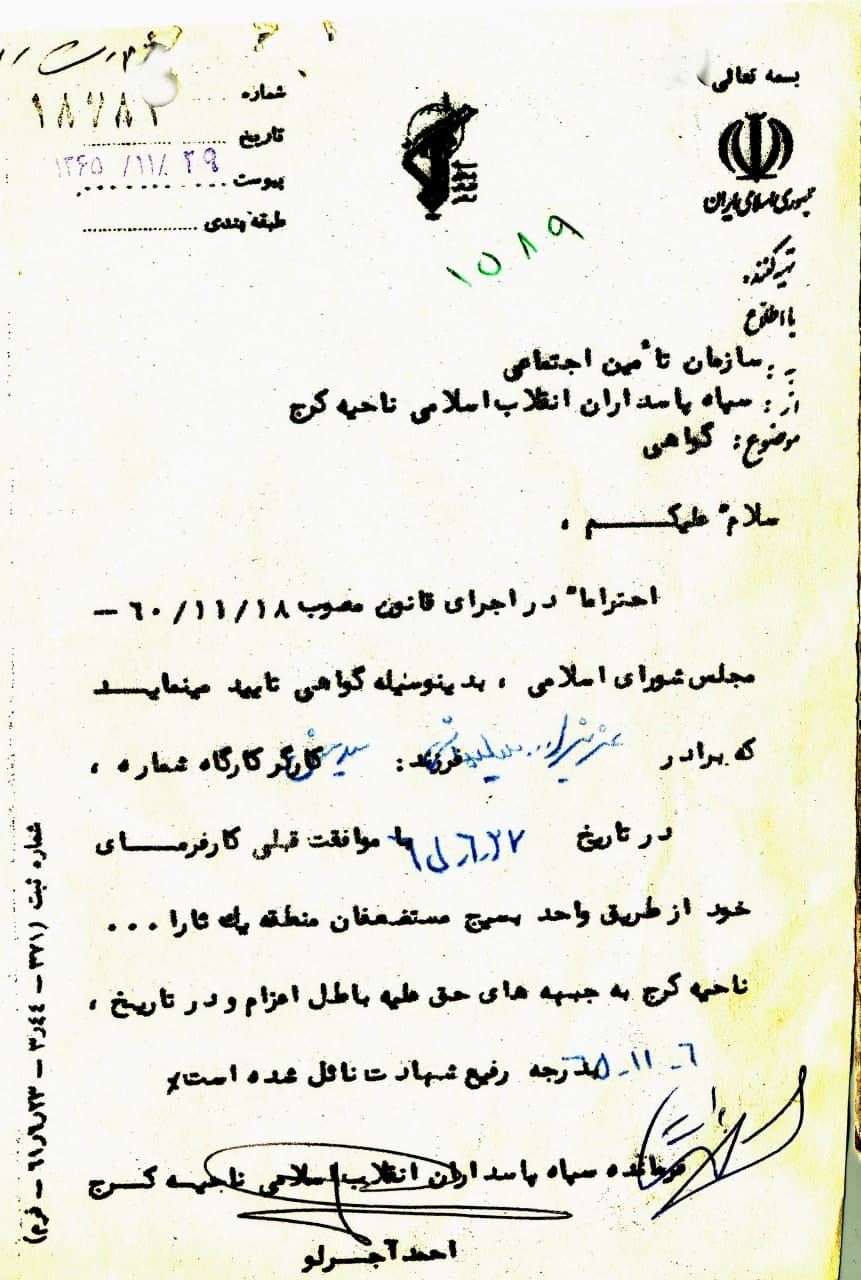 بسمه تعالی
جمهوری اسلامی ایران
شماره
۱۸۷۸۲
تاریخ
۱۳۶۵/۱۱/۲۹
پیوست
طبقه بندی
۱۵۸۹
گیرکننده:
با اطلاع
به: سازمان تأمین اجتماعی
از: سپاه پاسداران انقلاب اسلامی ناحیه کرج
موضوع: گواهی
سلامٌ علیکـــم ،
احتراماً در اجرای قانون مصوب ۶۰/۱۱/۱۸ –
مجلس شورای اسلامی ، بدینوسیله گواهی تایید مینمایـــد
که برادر فرزند: کارگر کارگاه شماره ،
در تاریخ با موافقت قبلی کارفرمـــای
خود از طریق واحد بسیج مستضعفان منطقه یك ثارا ...
ناحیه کرج به جبهه های حق علیه باطل اعزام و در تاریخ ،
۶-۱۱-۶۵ بدرجه رفیع شهادت نائل شده است٪
فرمانده سپاه پاسداران انقلاب اسلامی ناحیـه کـــرج
احمد آجــرلو
شماره ثبت (۳۷۱ – ۳٫۴۴ – ۶۱٫۶٫۲۳ – فرم)